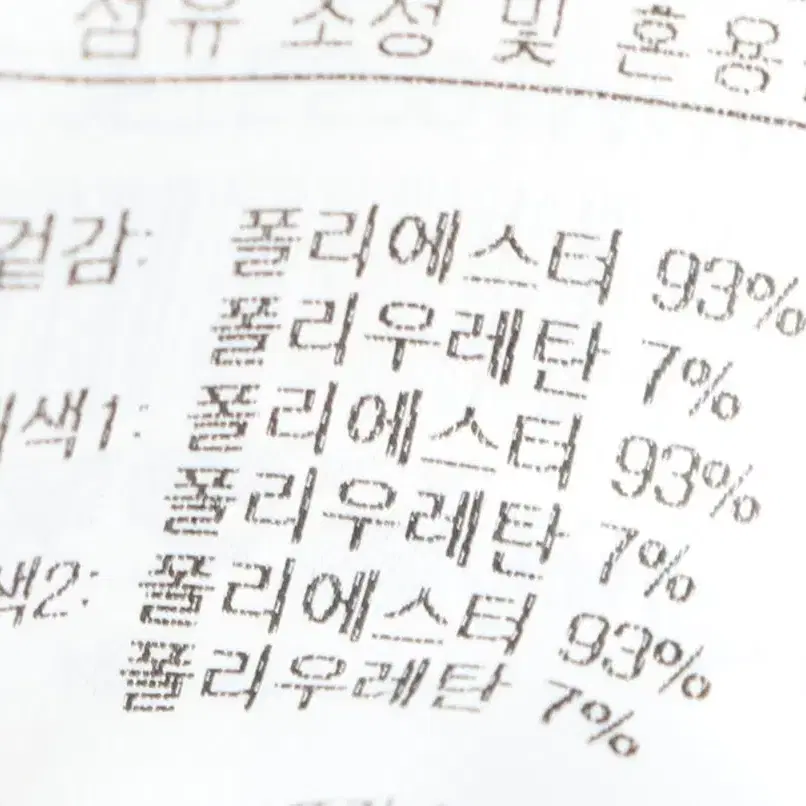 섬유 조성 및 혼용
겉감: 폴리에스터 93%
폴리우레탄 7%
배색1: 폴리에스터 93%
폴리우레탄 7%
색2: 폴리에스터 93%
폴리우레탄 7%